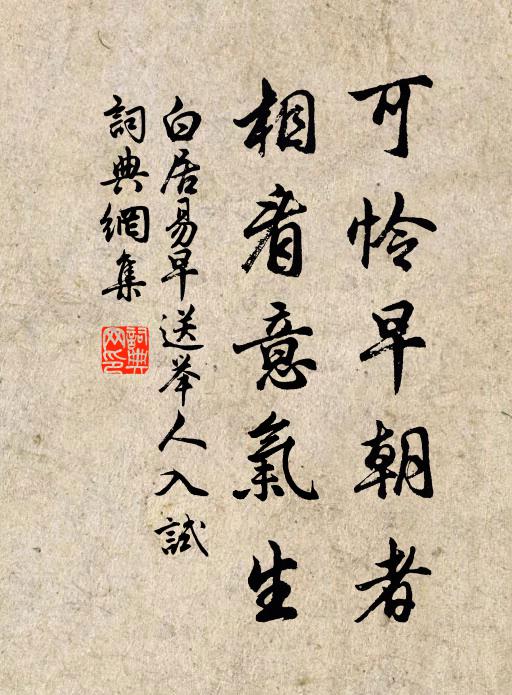 可怜早朝者
相看意氣生
白居易早送举人入試
詞典網集
詞典网印